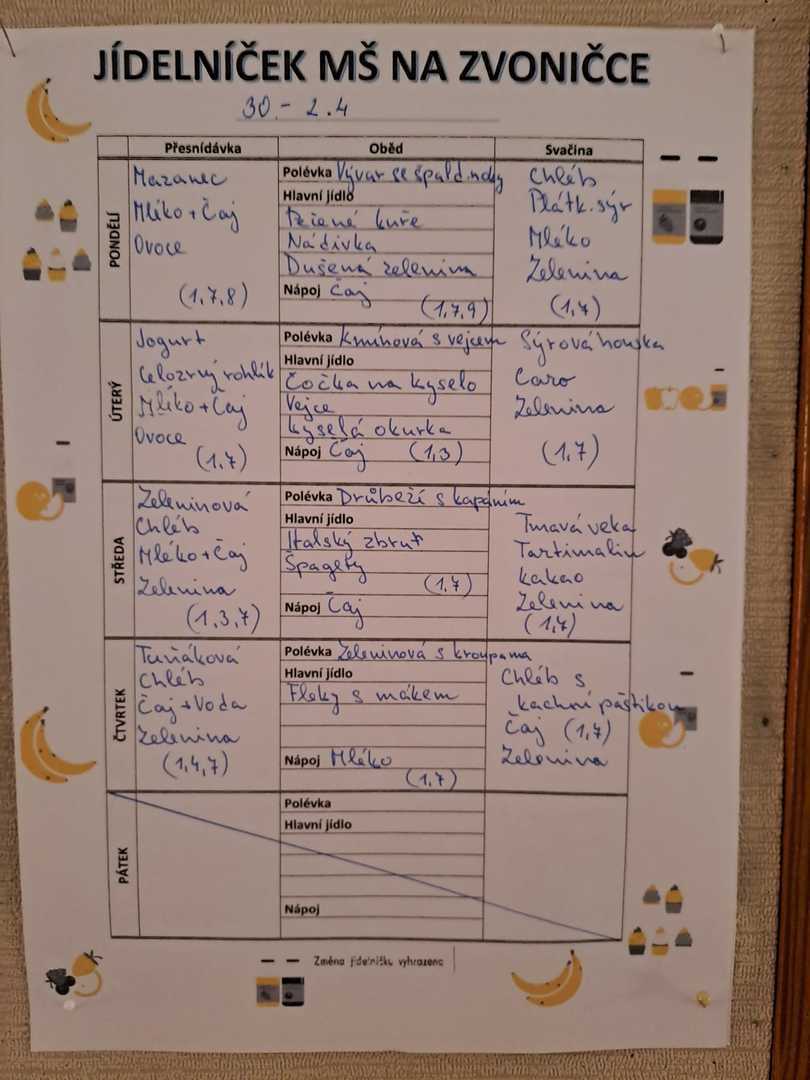 JÍDELNÍČEK MŠ NA ZVONIČCE
30.- 2.4
Přesnídávka Oběd Svačina
PONDĚLÍ
Mazanec
Mléko + Čaj
Ovoce
(1,7,8)
Polévka Vývar se špald. nudly
Hlavní jídlo
Pečené kuře
Nádivka
Dušená zelenina
Nápoj Čaj
(1,7,9)
Chléb
Plátk. sýr
Mléko
Zelenina
(1,7)
ÚTERÝ
Jogurt
Celozrný rohlík
Mléko + Čaj
Ovoce
(1,7)
Polévka Kmínová s vejcem
Hlavní jídlo
Čočka na kyselo
Vejce
kyselá okurka
Nápoj Čaj (1,3)
Sýrová houska
Caro
Zelenina
(1,7)
STŘEDA
Zeleninová
Chléb
Mléko + Čaj
Zelenina
(1,3,7)
Polévka Drůbeží s kapáním
Hlavní jídlo
Italský
Špagety
(1,7)
Nápoj Čaj
Tmavá veka
Tartimalin
kakao
Zelenina
(1,7)
ČTVRTEK
Tuňáková
Chléb
Čaj + Voda
Zelenina
(1,4,7)
Polévka Zeleninová s kroupama
Hlavní jídlo
Fleky s mákem
Nápoj Mléko
(1,7)
Chléb s
kachní paštikou
Čaj (1,7)
Zelenina
PÁTEK
Polévka
Hlavní jídlo
Nápoj
Změna jídelníčku vyhrazena